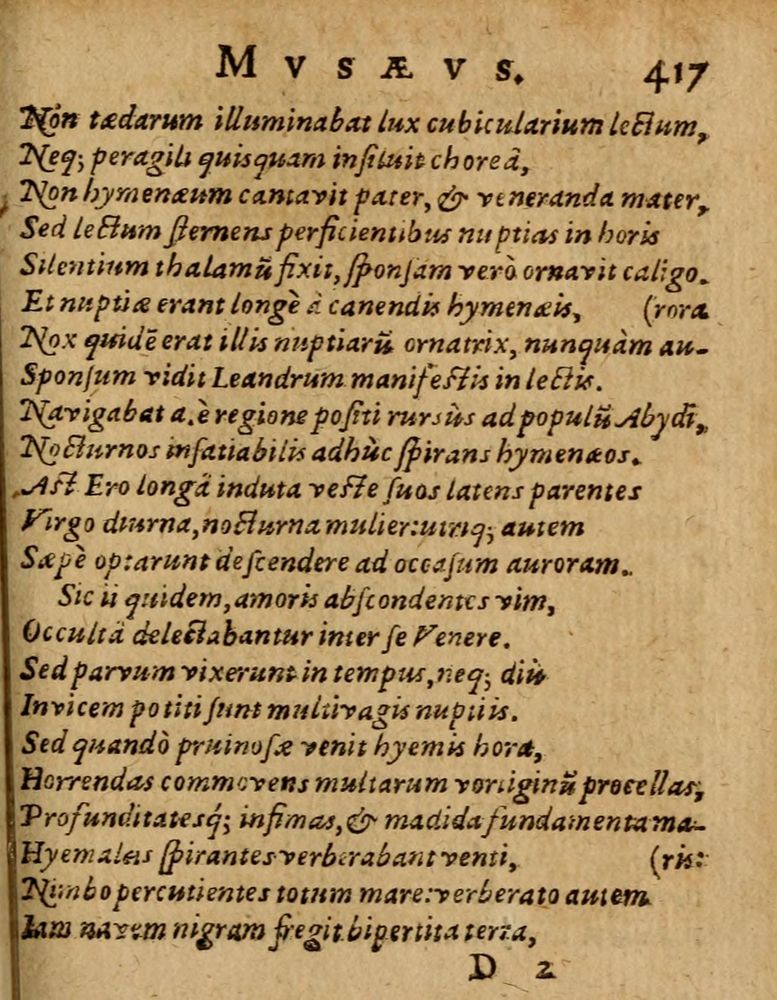 MVSÆVS. 417
Non tædarum illuminabat lux cubicularium lectum,
Neq; peragili quisquam insiluit choreâ,
Non hymenæum cantavit pater, & veneranda mater,
Sed lectum sternens perficientibus nuptias in horis
Silentium thalamũ fixit, sponsam verò ornavit caligo.
Et nuptiæ erant longè à canendis hymenæis, (rora
Nox quidẽ erat illis nuptiarũ ornatrix, nunquàm au-
Sponsum vidit Leandrum manifestis in lectis.
Navigabat a. è regione positi rursùs ad populũ Abydi,
Nocturnos insatiabilis adhùc spirans hymenæos.
Ast Ero longâ induta veste suos latens parentes
Virgo diurna, nocturna mulier: utriq; autem
Sæpè optarunt descendere ad occasum auroram.
Sic ii quidem, amoris abscondentes vim,
Occultâ delectabantur inter se Venere.
Sed parvum vixerunt in tempus, neq; diù
Invicem potiti sunt multivagis nuptiis.
Sed quandò pruinosæ venit hyemis hora,
Horrendas commovens multarum vortiginũ procellas,
Profunditatesq́; infimas, & madida fundamenta ma-
Hyemales spirantes verberabant venti, (ris:
Nimbo percutientes totum mare: verberato autem
Iam navem nigram fregit bipertita terra,
D 2